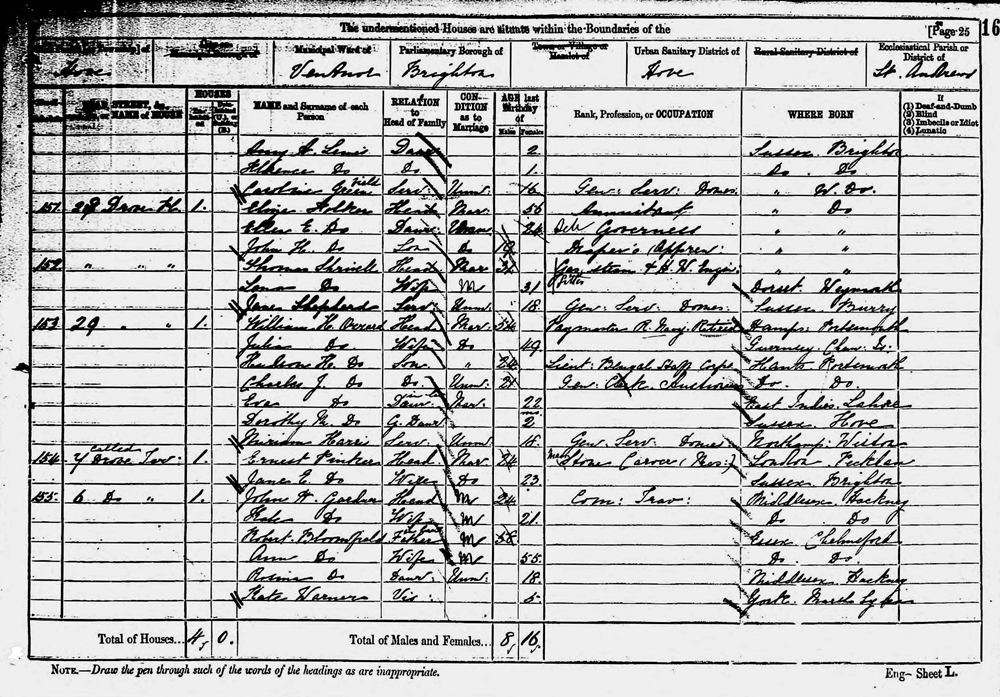 The undermentioned Houses are situate within the Boundaries of the
[Page 25 16
Municipal Ward of Parliamentary Borough of Town or Village or Hamlet of Urban Sanitary District of Rural Sanitary District of Ecclesiastical Parish or District of
Hove Brighton Hove St. Andrews
HOUSES
NAME and Surname of each Person RELATION to Head of Family CONDITION as to Marriage AGE last Birthday of Males Females Rank, Profession, or OCCUPATION WHERE BORN If (1) Deaf-and-Dumb (2) Blind (3) Imbecile or Idiot (4) Lunatic
Amy H. Lewis Daur 2 Sussex Brighton
Florence Do Do 1 Do Do
Caroline Greenfield Serv: Unm: 16 Gen: Serv: Domes: " W. Do.
151 28 Drove 1. Eliza Head Mar 56 Annuitant " Do
Ellen E. Do Daur: Unm 24 Governess " "
John H. Do Son Do 19 Draper's Appren: " "
152 " " " Thomas Shrivell Head Mar 31 Gas, steam & H. W. Engin: Fitter " "
Lena Do Wife M 31 Dorset. Weymouth
Jane Shepherd Serv: Unm: 18 Gen: Serv: Domes: Sussex Burry
153 29 " " 1. William H. Head Mar: 54 Paymaster R. Navy Retired Hamps: Portsmouth
Julia Do. Wife Do 49 Guernsey Chan: Is:
H. Do Son " 24 Lieut: Bengal Staff Corps Hants Portsmouth
Charles J. Do Do. Unm: 21 Gen. Clerk Do. Do.
Eva Do Daur in La Mar: 22 East Indies Lahore
Dorothy M. Do G. Daur 2 mos: Sussex Hove
Miriam Harris Serv: Unm: 18 Gen: Serv: Domes: Northamp:
154 7 called Drove Terr: 1. Ernest Pinker Head Mar 24 Stone Carver London
Jane E. Do Wife Do 23 Sussex Brighton
155 6 Do " 1. John W. Head M 24 Com: Trav: Middlesex Hackney
Kate Do Wife M 21 Do Do
Robert Bloomfield Father in Law M 58 Essex Chelmsford
Ann Do Wife M 55 Do Do.
Rosina Do Daur: Unm: 18 Middlesex Hackney
Kate Warner Vis: 5 York.
Total of Houses... 4 0. Total of Males and Females... 8 16
NOTE.—Draw the pen through such of the words of the headings as are inappropriate. Eng— Sheet L.